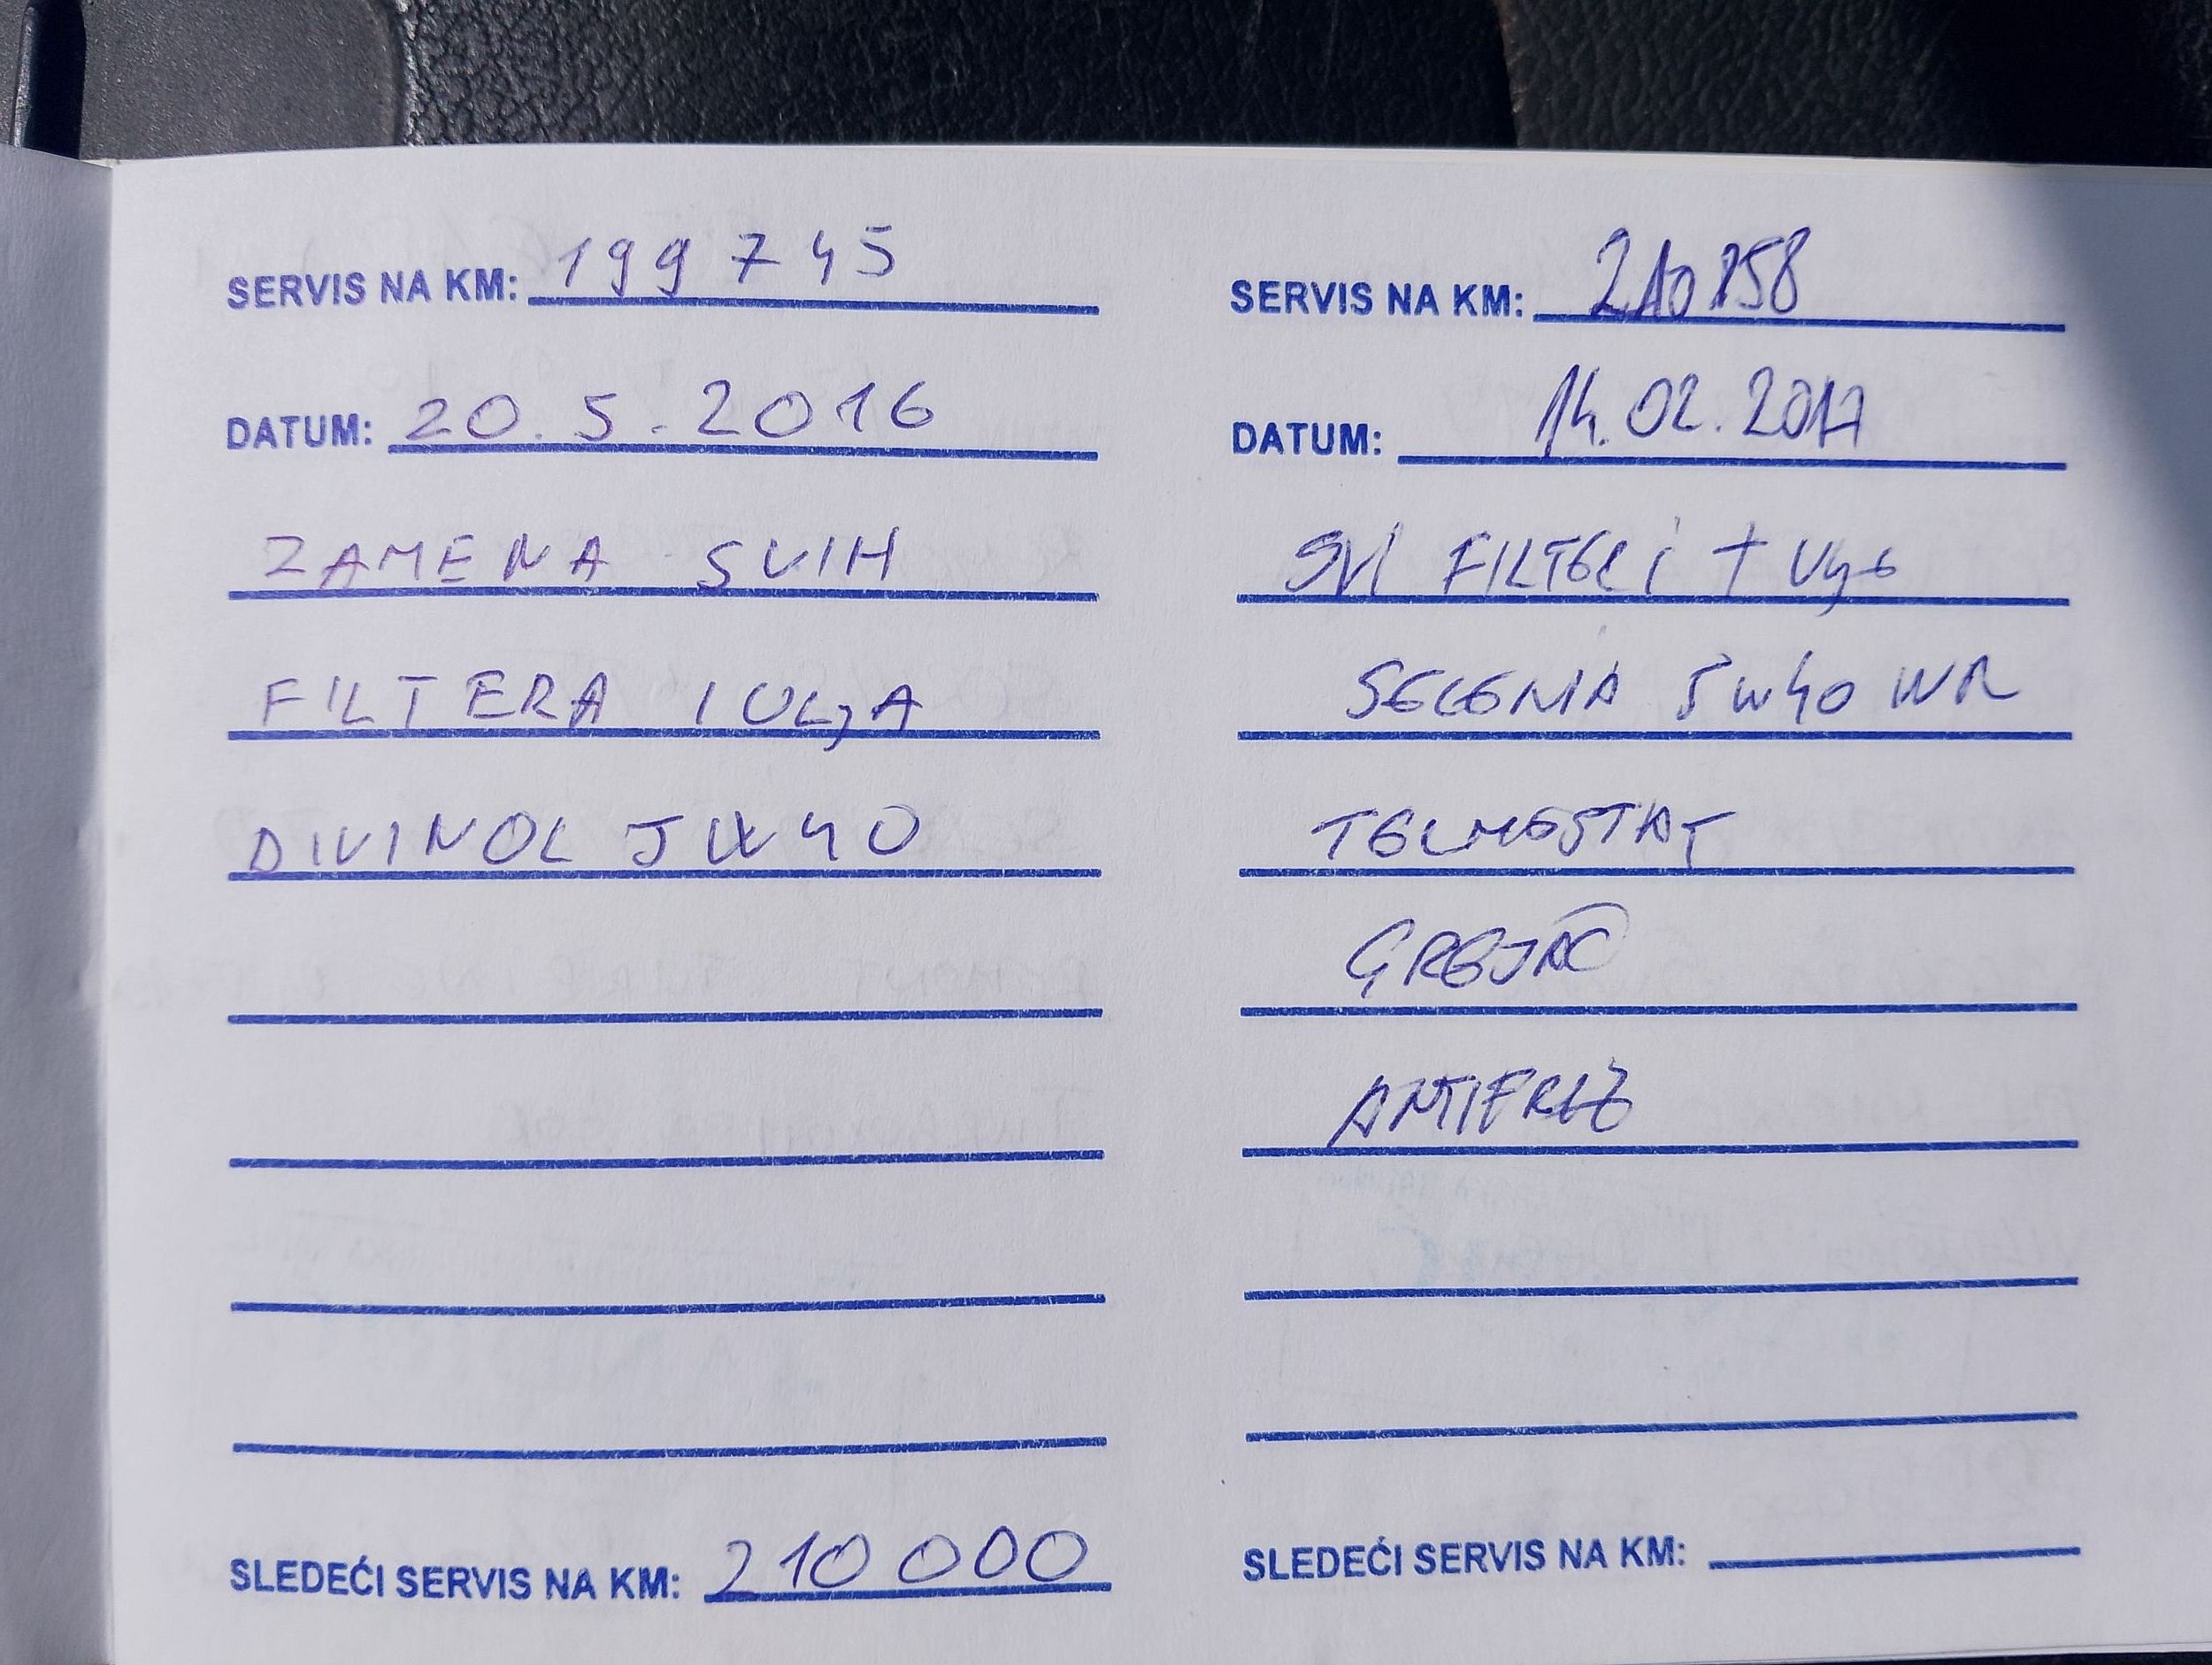 SERVIS NA KM: 199745
DATUM: 20.5.2016
ZAMENA SVIH
FILTERA I ULJA
DIVINOL 5W40
SLEDEĆI SERVIS NA KM: 210000
SERVIS NA KM: 210858
DATUM: 14.02.2017
SVI FILTERI + Uye
SELENIA 5W40 WR
TERMOSTAT
GREJAČ
ANTIFRIZ
SLEDEĆI SERVIS NA KM: